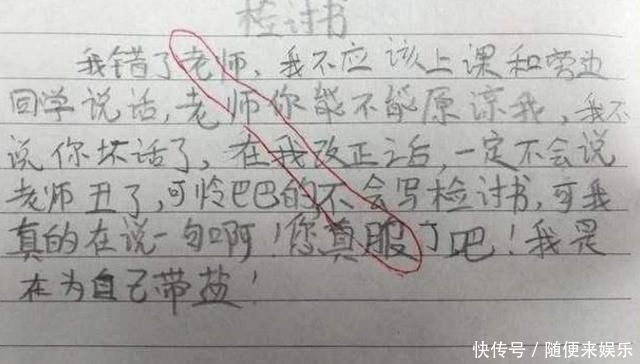 检讨书
我错了老师，我不应该上课和旁边
同学说话，老师你能不能原谅我，我不
说你坏话了，在我改正之后，一定不会说
老师丑了，可怜巴巴的不会写检讨书，可我
真的在说一句啊！您真服了吧！我是
在为自己带盐！
快传号／随便来娱乐